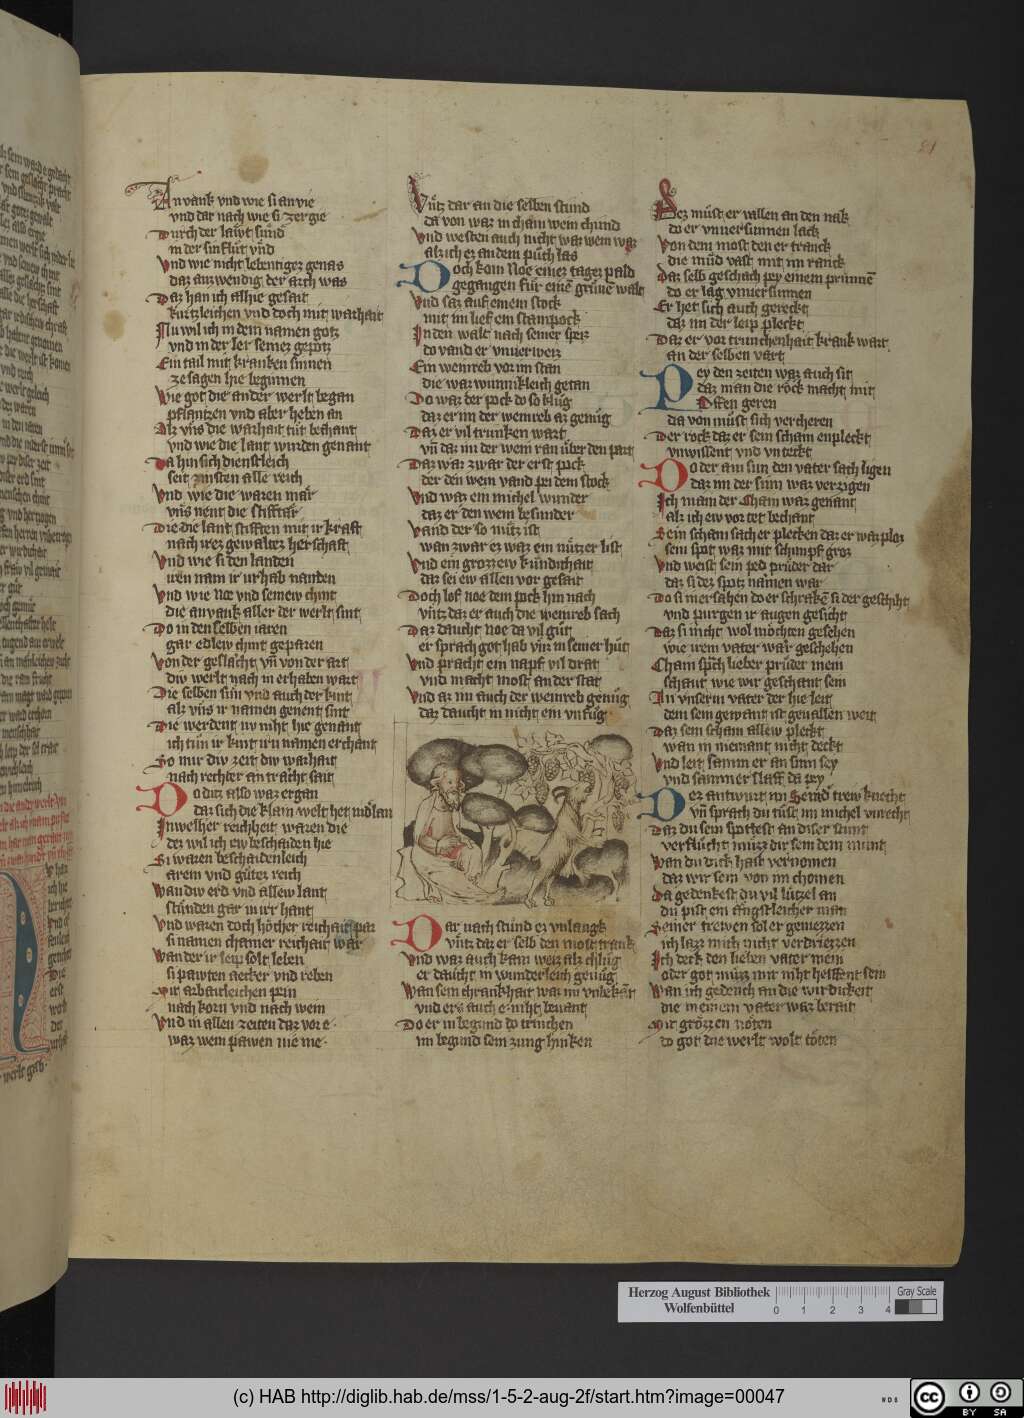 21
Anvank vnd wie si an vie
vnd dar nach wie si zergie
Durch der lawt sund
in der sinflut vnd
Vnd wie nicht lebentigez genas
daz auzwendig der arch was
Daz han ich allhie gesait
kurtzleichen vnd doch mit warhait
Nu wil ich in dem namen gotz
vnd in der ler seinez gepotz
Ein tail mit kranken sinnen
ze sagen hie beginnen
Wie got die ander werlt began
pflantzen vnd aber heben an
Alz vns die warhait tut bechant
vnd wie die lant wurden genant
Da hin sich dienstleich
seit zinsten alle reich
Vnd wie die waren mar
vns nent die stifftar
Die die lant stifften mit ir kraft
nach irez gewaltez herschaft
Vnd wie si den landen
iren nam ir vrhab nanden
Vnd wie Noe vnd seinew chint
die anvank aller der werlt sint
Do in den selben iaren
gar edlew chint geparen
Von der geslacht vn von der art
diw werlt nach in erhaben wart
Die selben sun vnd auch der kint
alz vns ir namen genent sint
Die werdent iw niht hie genant
ich tun ir kint iru namen erchant
So mir diw zeit diw warhait
nach rechter an tracht sait
Do ditz also waz ergan
daz sich die klain welt het nidlan
In welher reichheit waren die
dez wil ich ew beschaiden hie
Si waren beschaidenleich
arem vnd gutez reich
Wan diw erd vnd allew lant
stunden gar in ir hant
Vnd waren doch hocher reichait par
si namen chainer reichait war
Wan der ir leip solt leben
si pawten aecker vnd reben
Mit arbaitleichen pein
nach korn vnd nach wein
Vnd in allen zeiten daz vor e
waz wein pawen nie me
Vntz dar an die selben stund
da von waz in cham wein chund
Vnd westen auch nicht waz wein waz
alz ich ez an dem puch las
Doch kom Noe einez tagez pald
gegangen fur eine grune walt
Vnd saz auf einem stock
mit im lief ein stainpock
In den walt nach seiner speiz
do vand er in vnierweiz
Ein weinreb vor im stan
die waz wunnikleich getan
Do waz der pock do so klug
daz er im der weinreb az genug
Daz er vil trunken wart
vn daz im der wein ran vber den part
Daz waz zwar der erst pock
der den wein vand pei dem stock
Vnd waz ein michel wunder
daz er den wein besunder
Vand der so nutz ist
wan zwar ez waz ein nutzer list
Vnd ein grozzew kundichait
daz sei ew allen vor gesait
Doch lof noe dem pock hin nach
vntz daz er auch die weinreb sach
Daz daucht noe da vil gut
er sprach got hab vnz in seiner hut
Vnd pracht ein napf vil drat
vnd macht most an der stat
Vnd az im auch der weinreb genug
daz daucht in nicht ein vnfug
Dar nach stund ez vnlangk
vntz daz er selb den most trank
Vnd waz auch kain weiz alz chlug
er daucht in wunderleich genug
Wan sein chrankhait waz im vnbekant
vnd ers auch e niht bevant
Do er in begund do trinchen
im begund sein zung hinken
Dez must er vallen an den nak
do er vnversunnen lack
Von dem most den er tranck
die mud vast mit im ranck
Daz selb geschach pey einem prunnen
do er lag vnversunnen
Er het sich auch gereckt
daz im der leip pleckt
Daz er vor trunchenhait krank wart
an der selben vart
Pey den zeiten waz auch sit
daz man die rock macht mit
Offen geren
da von must sich vercheren
Der rock daz er sein scham enpleckt
vnwissent vnd vnteckt
Do der ain sun den vater sach ligen
daz im der sinn waz verzigen
Ich main der Cham waz genant
alz ich ew vor tet bechant
Sein scham sach er plecken daz er waz ploz
sein spot waz mit schimpf groz
Vnd weist sein ped pruder dar
daz si dez spotz namen war
Do si in ersahen do erschraken si der geschiht
vnd purgen ir augen gesicht
Daz si nicht wol mochten gesehen
wie irem vater war geschehen
Cham sprach lieber pruder mein
schaut wie wir geschant sein
An vnserm vater der hie leit
dem sein gewant ist gevallen weit
Daz sein scham allew pleckt
wan in niemant nicht deckt
Vnd leit samm er an sinn sey
vnd sammer slaff da pey
Der antwurt im Sem der trew knecht
vn sprach du tust im michel vnrecht
Daz du sein spottest an diser stunt
verflucht muzz dir sein dein munt
Wan du dick hast vernomen
daz wir sein von im chomen
Da gedenkest du vil lutzel an
du pist ein angstleicher man
Seiner trewen sol er geniezzen
ich lazz mich nicht verdriezzen
Ich deck den lieben vater mein
oder got muzz mit niht helffent sein
Wan ich gedench an die wirdickeit
die meinem vater waz berait
Mit grozzen noten
do got die werlt wolt toten
Herzog August Bibliothek
Wolfenbüttel
0 1 2 3 4
Gray Scale
(c) HAB http://diglib.hab.de/mss/1-5-2-aug-2f/start.htm?image=00047
WDB
cc BY SA